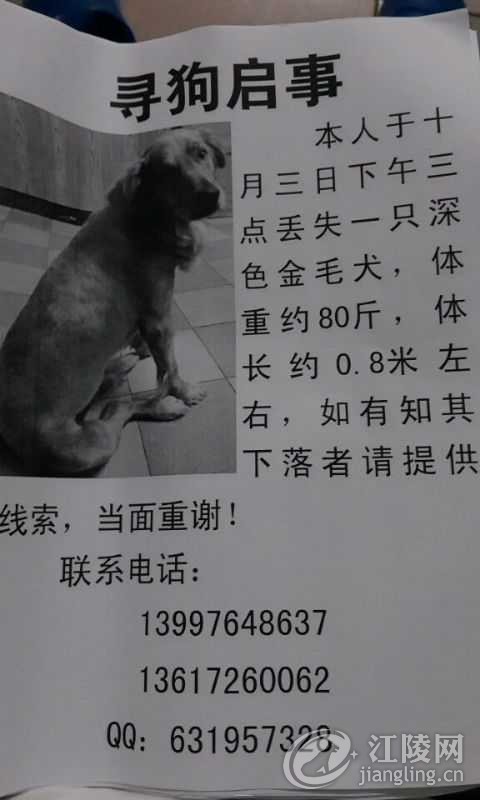 寻狗启事
本人于十
月三日下午三
点丢失一只深
色金毛犬，体
重约80斤，体
长约0.8米左
右，如有知其
下落者请提供
线索，当面重谢！
联系电话：
13997648637
13617260062
QQ：631957328
江陵网
jiangling.cn